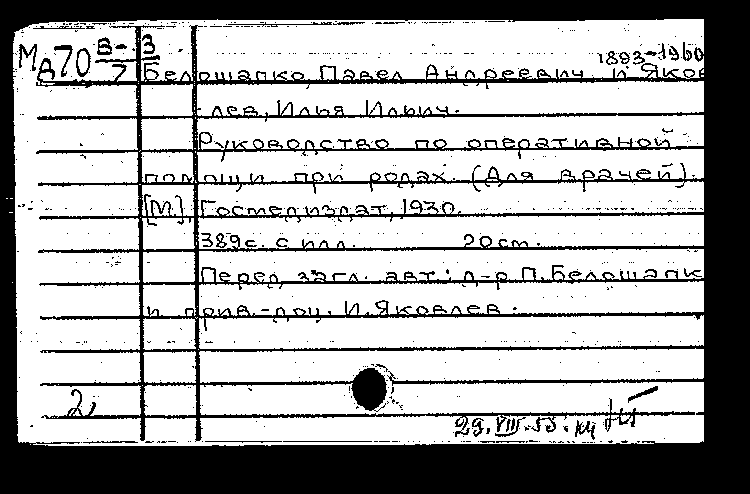 МВ70 В-3/7
1893-1960
Белошапко, Павел Андреевич. и Яков
лев, Илья Ильич.
Руководство по оперативной
помощи при родах. (Для врачей).
[М.], Госмедиздат, 1930.
389с. с илл. 20 cm.
Перед загл. авт.: д-р П.Белошапк
и прив.-доц. И.Яковлев.
2,
29.VIII.53.